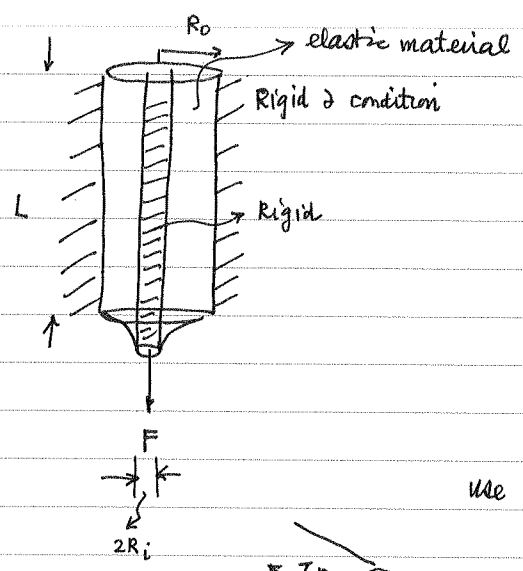 R₀
elastic material
Rigid ∂ condition
L
Rigid
F
use
2Rᵢ